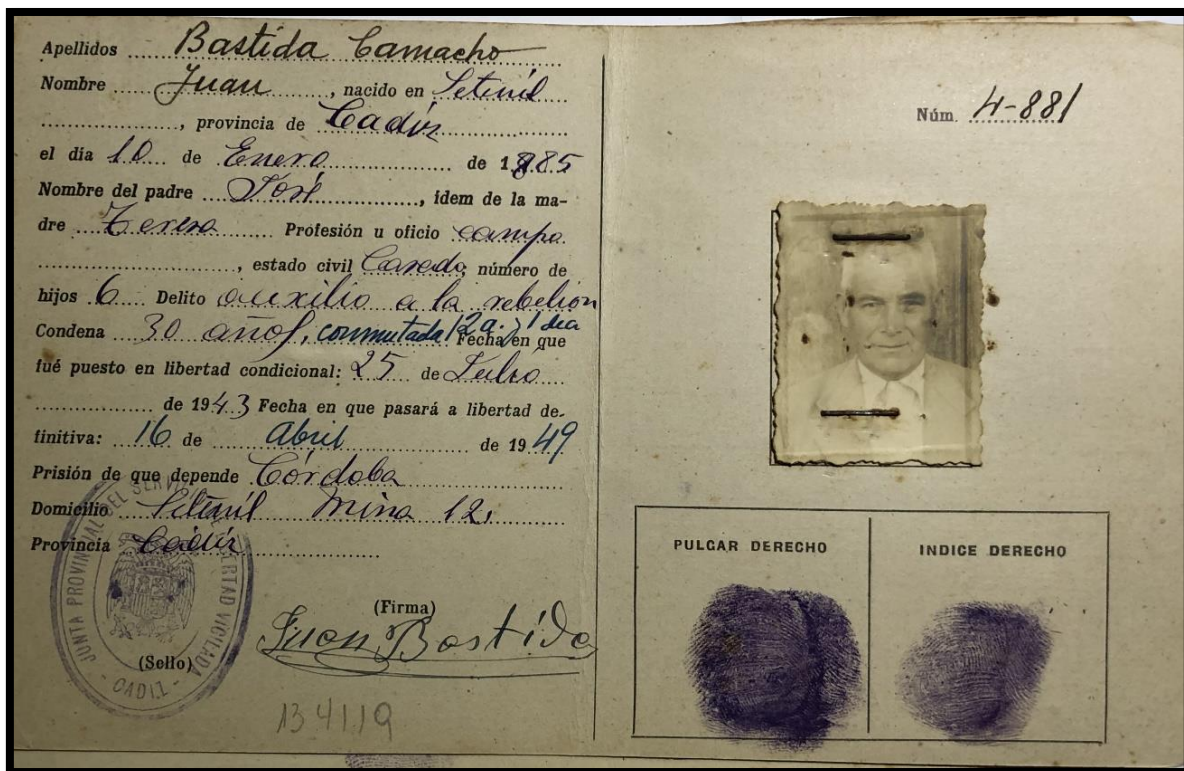 Apellidos Bastida Camacho
Nombre Juan, nacido en Setenil
, provincia de Cadiz
el día 10 de Enero de 1885
Nombre del padre José, ídem de la ma-
dre Teresa Profesión u oficio campo
, estado civil Casado, número de
hijos 6 Delito auxilio a la rebelión
Condena 30 años, conmutada 12 a. y 1 dia Fecha en que
fué puesto en libertad condicional: 25 de Julio
de 1943 Fecha en que pasará a libertad de-
finitiva: 16 de Abril de 1949
Prisión de que depende Córdoba
Domicilio Setenil Mina 12.
Provincia Cadiz
JUNTA PROVINCIAL DEL SERVICIO LIBERTAD VIGILADA
- CADIZ -
(Sello)
(Firma)
Juan Bastida
134119
Núm. 4-881
PULGAR DERECHO
INDICE DERECHO